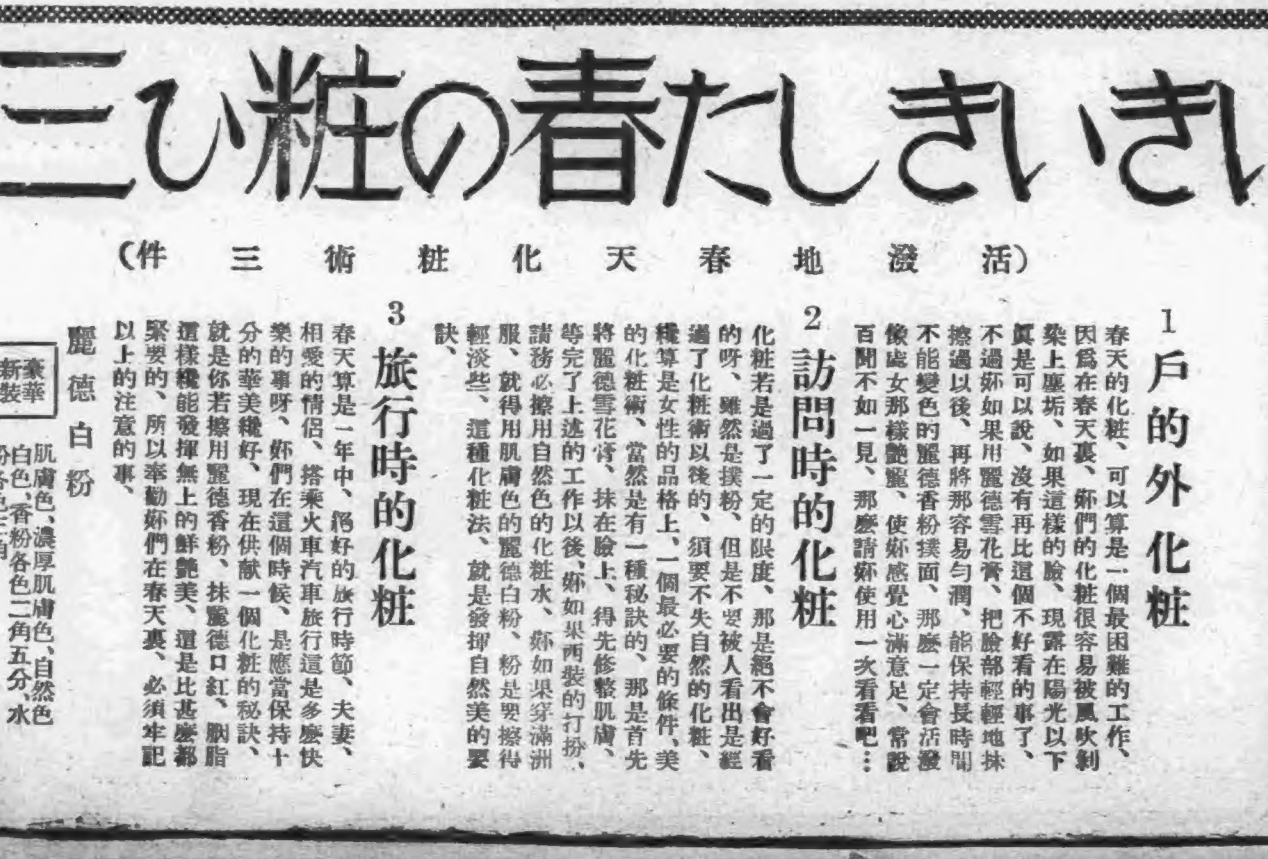 いきいきした春の粧ひ三
(活潑地春天化粧術三件)
1 戶的外化粧
春天的化粧、可以算是一個最困難的工作、
因爲在春天裏、妳們的化粧很容易被風吹剝
染上塵垢、如果這樣的臉、現露在陽光以下
眞是可以說、沒有再比這個不好看的事了、
不過妳如果用麗德雪花膏、把臉部輕輕地抹
擦過以後、再將那容易勻潤、能保持長時間
不能變色的麗德香粉撲面、那麽一定會活潑
像處女那樣艷麗、使妳感覺心滿意足、常說
百聞不如一見、那麽請妳使用一次看看吧…
2 訪問時的化粧
化粧若是過了一定的限度、那是絕不會好看
的呀、雖然是撲粉、但是不要被人看出是經
過了化粧術以後的、須要不失自然的化粧、
纔算是女性的品格上、一個最必要的條件、美
的化粧術、當然是有一種秘訣的、那是首先
將麗德雪花膏、抹在臉上、得先修整肌膚、
等完了上述的工作以後、妳如果西裝的打扮、
請務必擦用自然色的化粧水、妳如果穿滿洲
服、就得用肌膚色的麗德白粉、粉是要擦得
輕淡些、這種化粧法、就是發揮自然美的要
訣、
3 旅行時的化粧
春天算是一年中、絕好的旅行時節、夫妻、
相愛的情侶、搭乘火車汽車旅行這是多麽快
樂的事呀、妳們在這個時候、是應當保持十
分的華美纔好、現在供献一個化粧的秘訣、
就是你若擦用麗德香粉、抹麗德口紅、胭脂
這樣纔能發揮無上的鮮艷美、這是比甚麽都
緊要的、所以奉勸妳們在春天裏、必須牢記
以上的注意的事、
麗德白粉
豪華
新裝
肌膚色、濃厚肌膚色、自然色
白色、香粉各色二角五分、水
粉各色三角